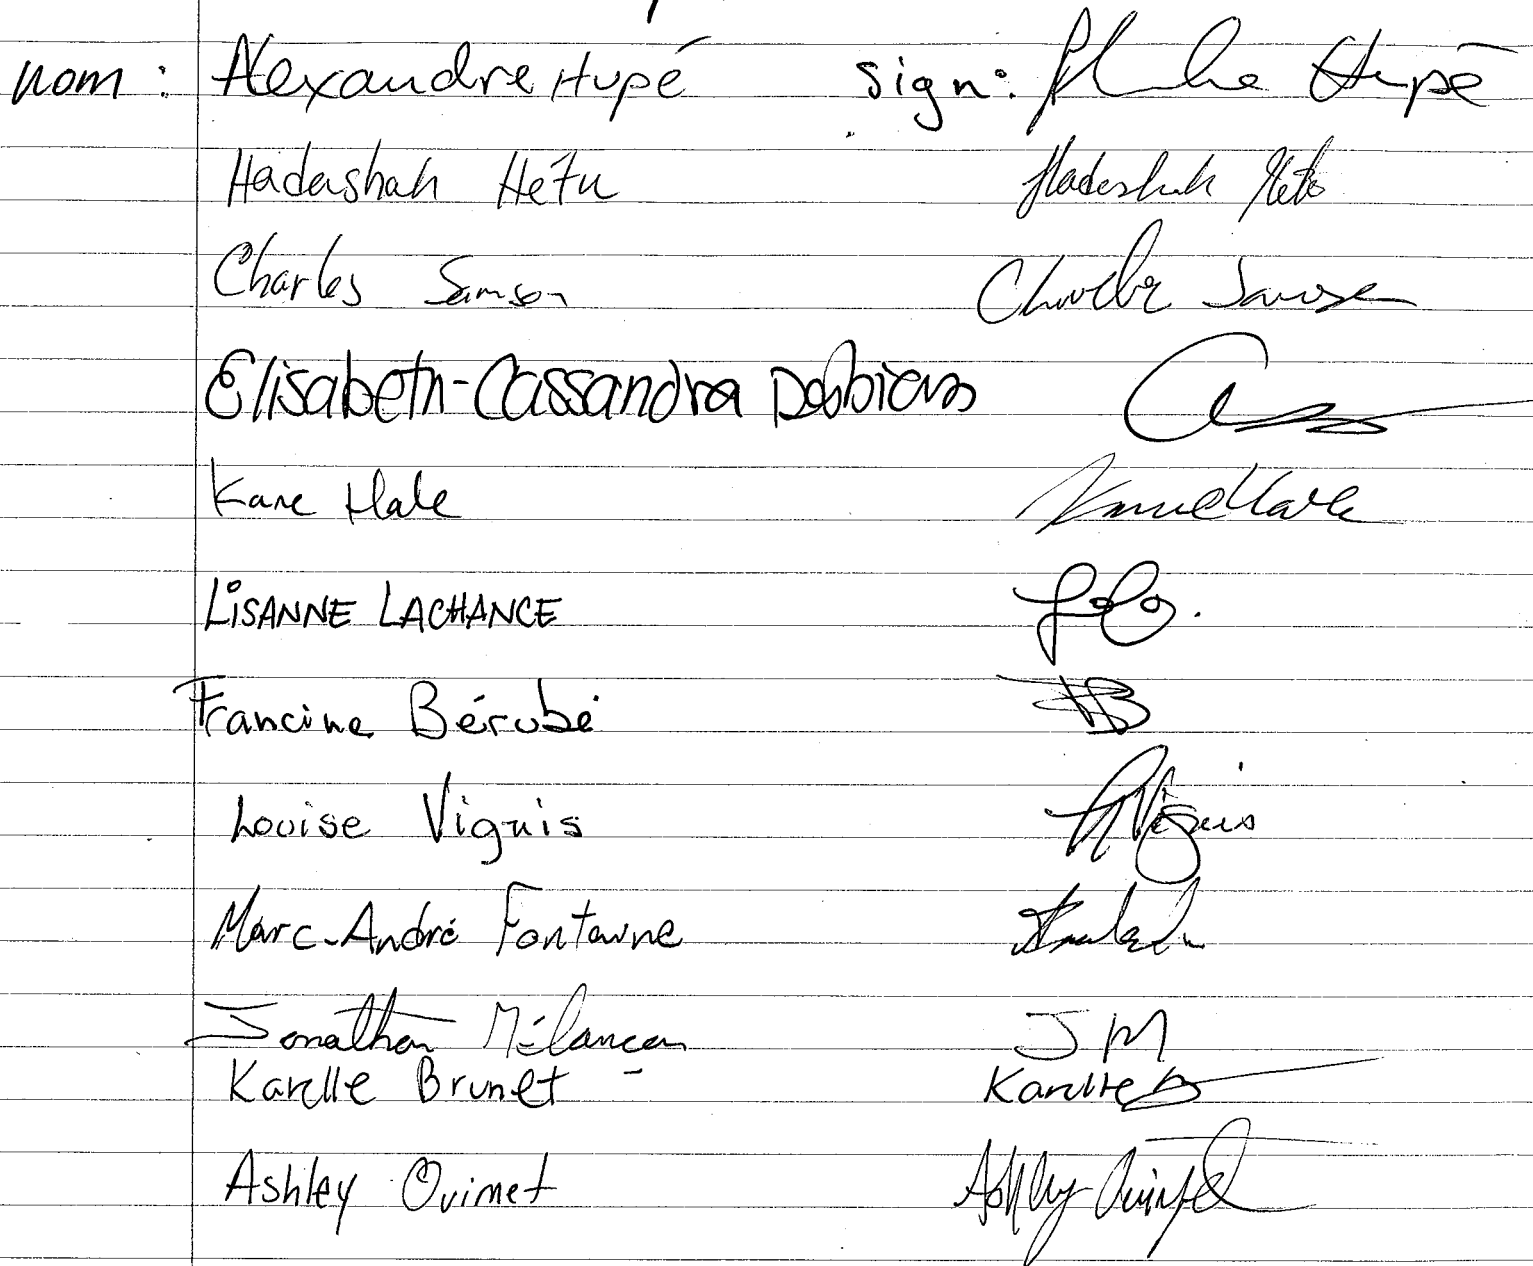 nom: Alexandre Hupé sign: Hupé
Hadashah Hétu Hadashah Hétu
Charles Samson Charles Samson
Elisabeth-Cassandra Desbiens
Kane Hale
LISANNE LACHANCE
Francine Bérubé FB
Louise Viguis L Viguis
Marc-André Fontaine
Jonathan Mélancon JM
Karelle Brunet Karelle B
Ashley Ouimet Ashley Ouimet